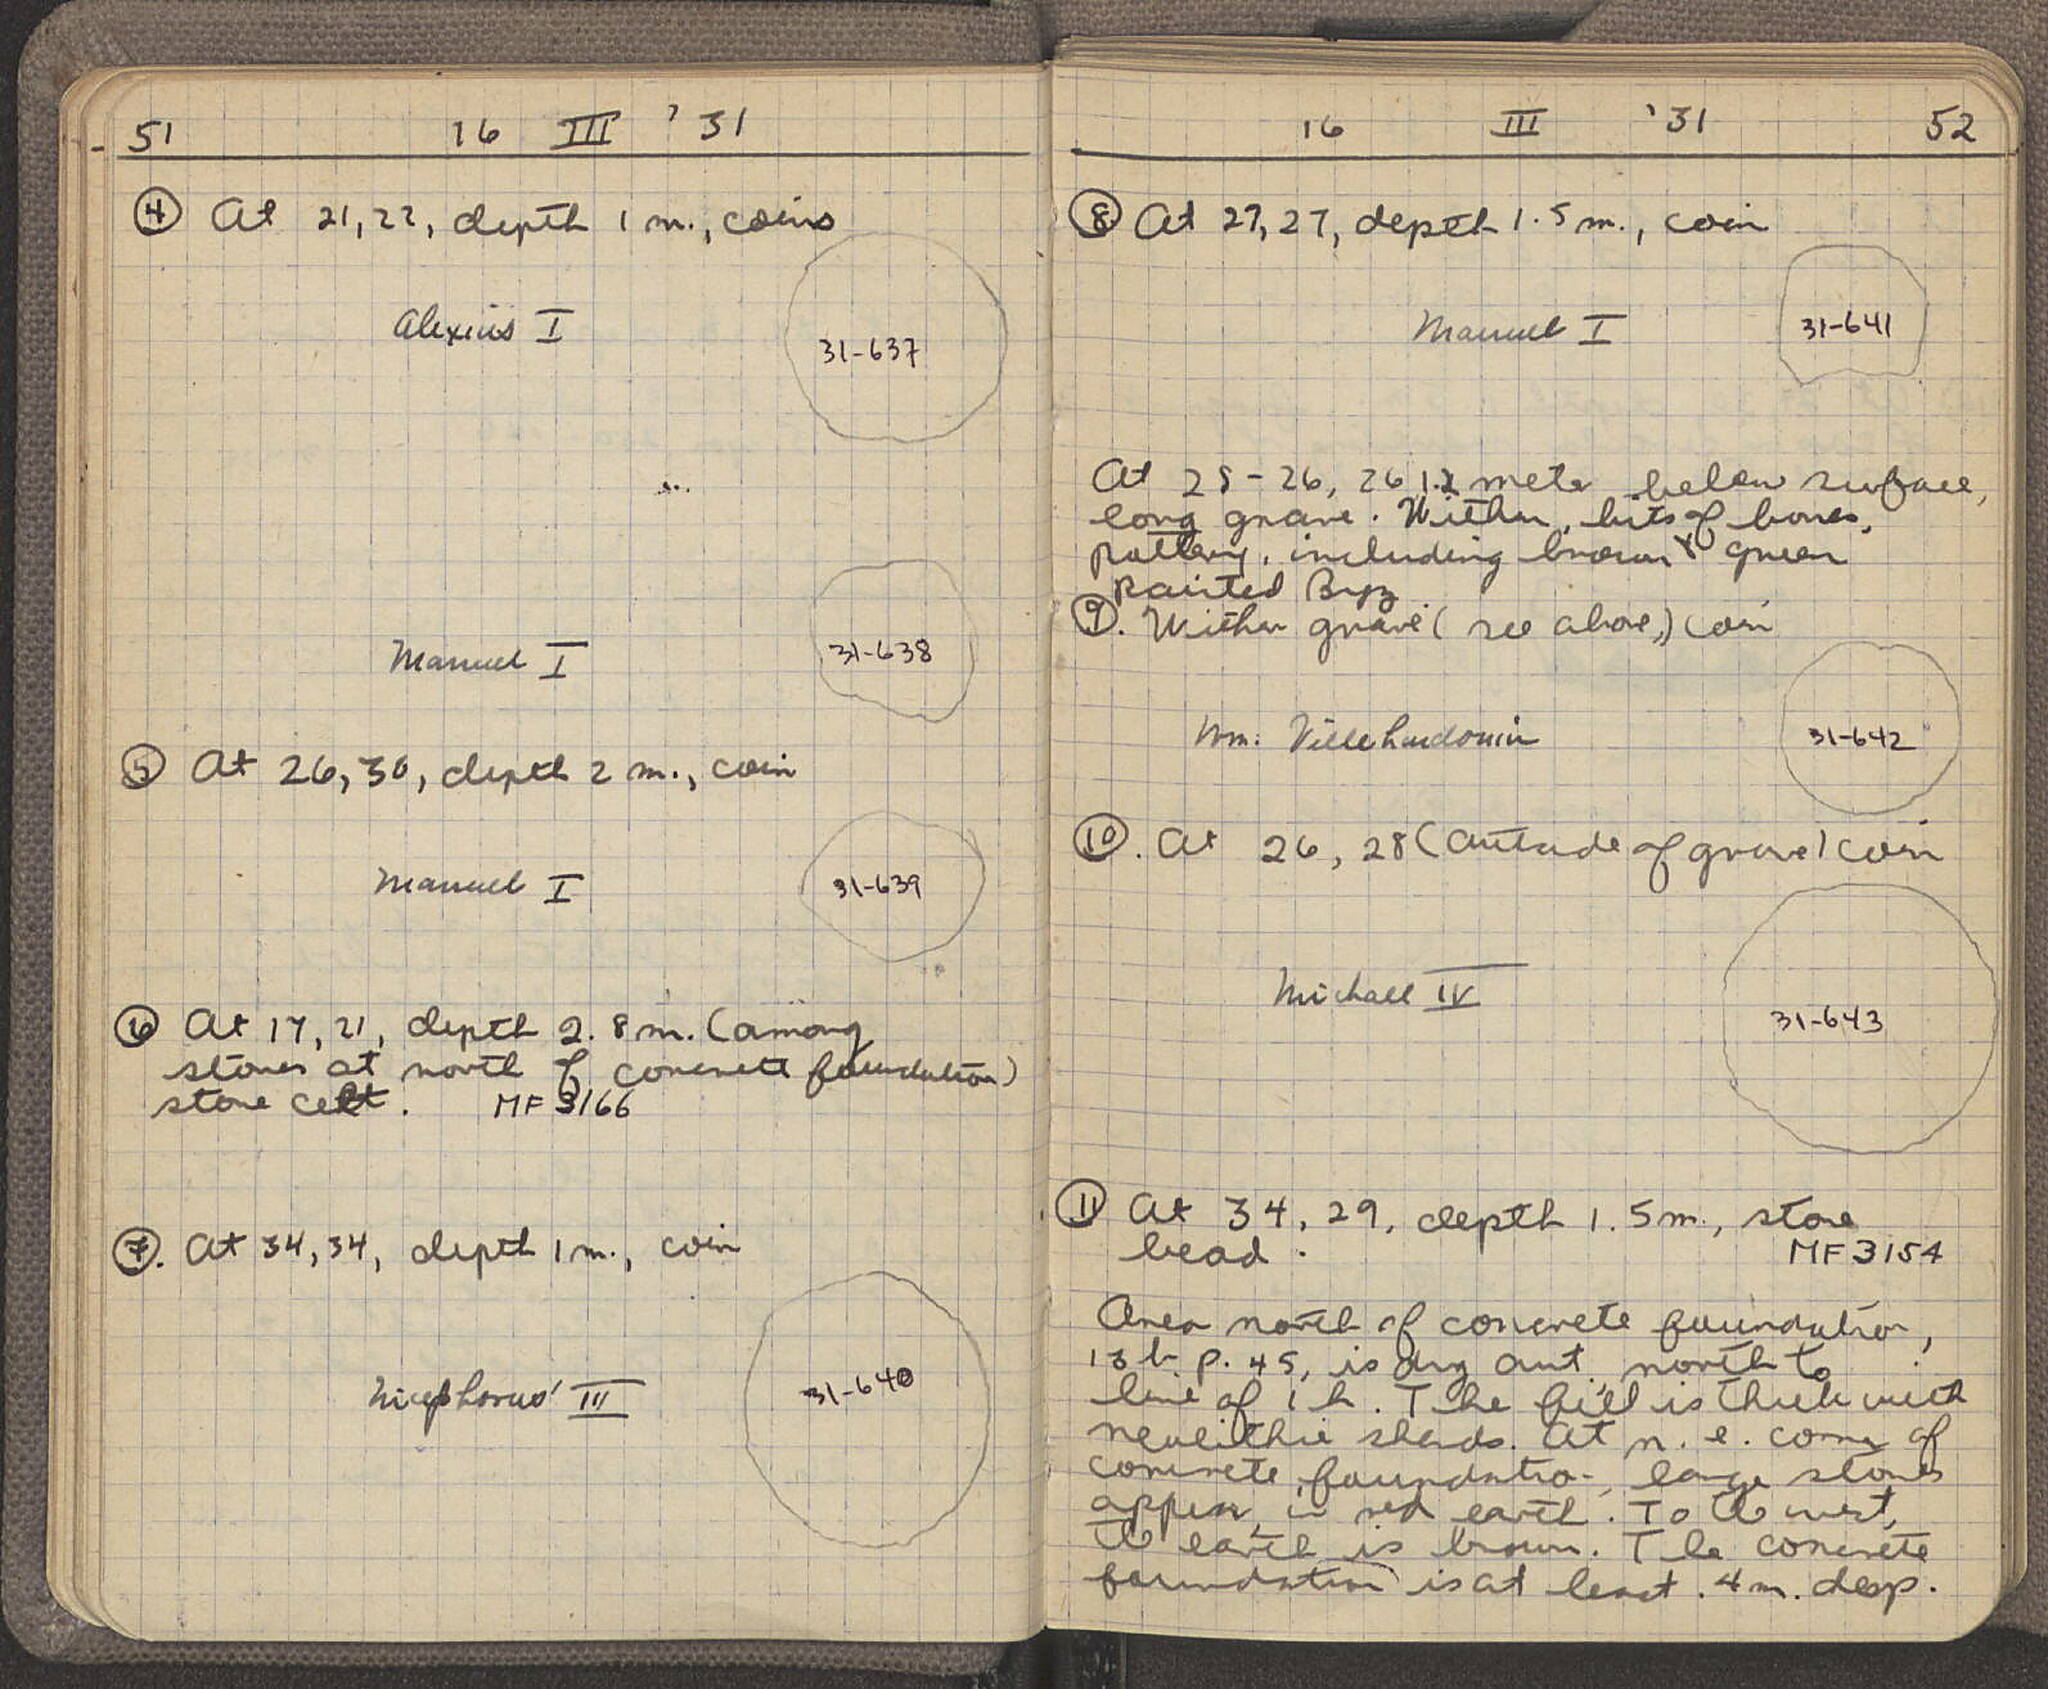 51 16 III '31
④ At 21,22, depth 1 m., coins
Alexius I
31-637
Manuel I
31-638
⑤ At 26,30, depth 2 m., coin
Manuel I
31-639
⑥ At 17,21, depth 2.8 m. (among
stones at north of concrete foundation)
stone celt. MF 3166
⑦. At 34,34, depth 1 m., coin
Nicephorus III
31-640
16 III '31 52
⑧ At 27,27, depth 1.5 m., coin
Manuel I
31-641
At 25-26, 26 1.2 meter below surface,
long grave. Within, bits of bones,
pottery, including brown & green
painted Byz
⑨. Within grave (see above,) coin
Wm. Villehardouin
31-642
⑩. At 26, 28 (outside of grave) coin
Michael IV
31-643
⑪ At 34, 29, depth 1.5 m., stone
bead. MF 3154
Area north of concrete foundation,
p. 45, is dug out north to
line of 1 h. The fill is thick with
neolithic sherds. At n. e. corner of
concrete foundation, large stones
appear in red earth. To the west,
the earth is brown. The concrete
foundation is at least .4 m. deep.